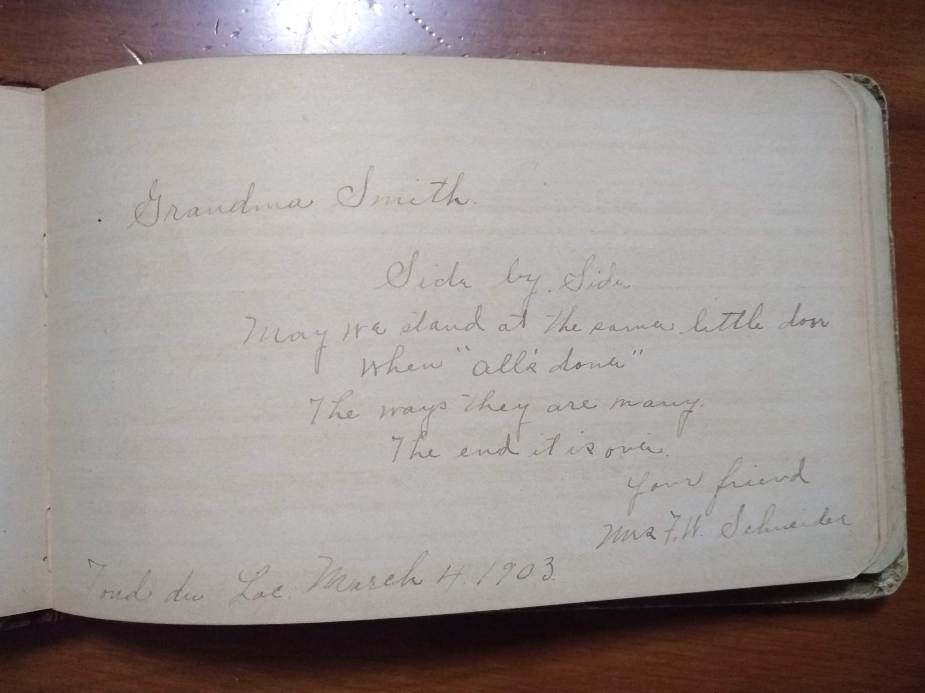 Grandma Smith.
Side by Side
May we stand at the same little door
when "all's done"
The ways they are many.
The end it is one.
Your friend
Mrs F. W. Schneider
Fond du Lac. March 4. 1903.